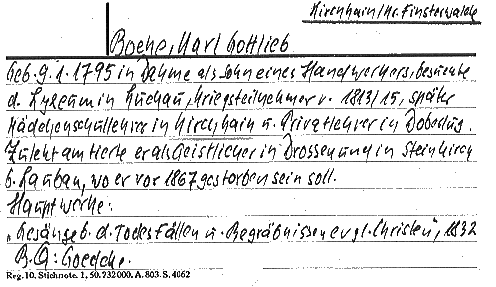 Kirchhain/Kr. Finsterwalde
Boehe, Karl Gottlieb
Geb. 9.1.1795 in Dahme als Sohn eines Handwerkers, besuchte
d. Lyzeum in Luckau, Kriegsteilnehmer v. 1813/15, später
Mädchenschullehrer in Kirchhain u. Privatlehrer in Doberlug.
Zuletzt amtierte er als Geistlicher in Drossen und in Steinkirch
b. Lauban, wo er vor 1867 gestorben sein soll.
Hauptwerke:
"Gesänge b. d. Todesfällen u. Begräbnissen evgl. Christen", 1832
B. Q: Goedeke.
Reg. 10. Stichnote. 1, 50. 732000. A. 803. S. 4062